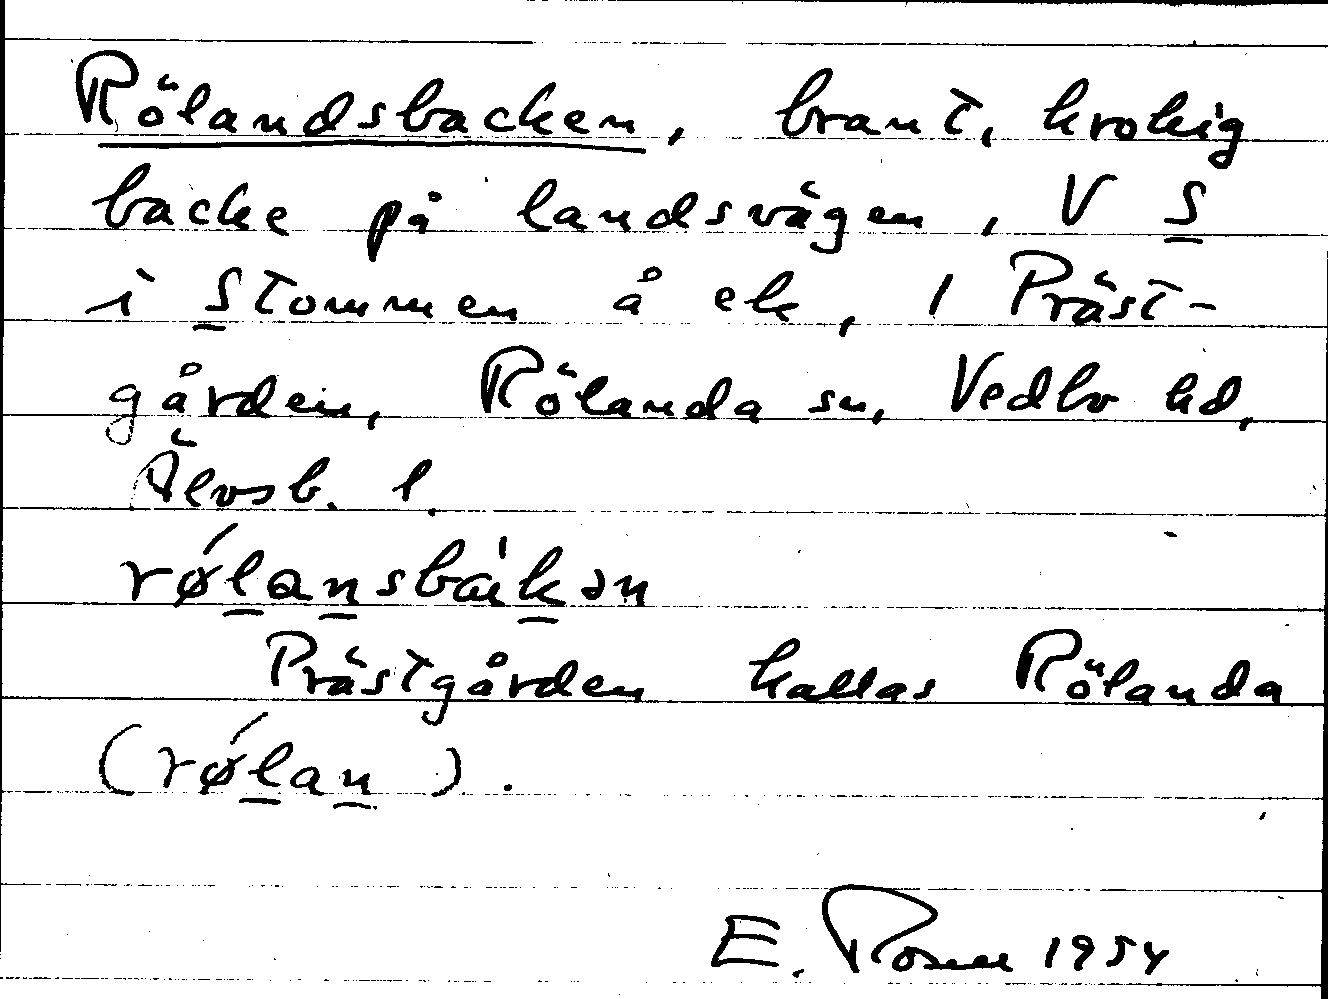 Rölandsbacken, brant, krokig
backe på landsvägen, V S
i Stommen å ek, 1 Präst-
gården, Rölanda sn, Vedbo hd,
Älvsb. l.
rǿlansbàkən
Prästgården kallas Rölanda
(rǿlan).
E. Rosell 1954